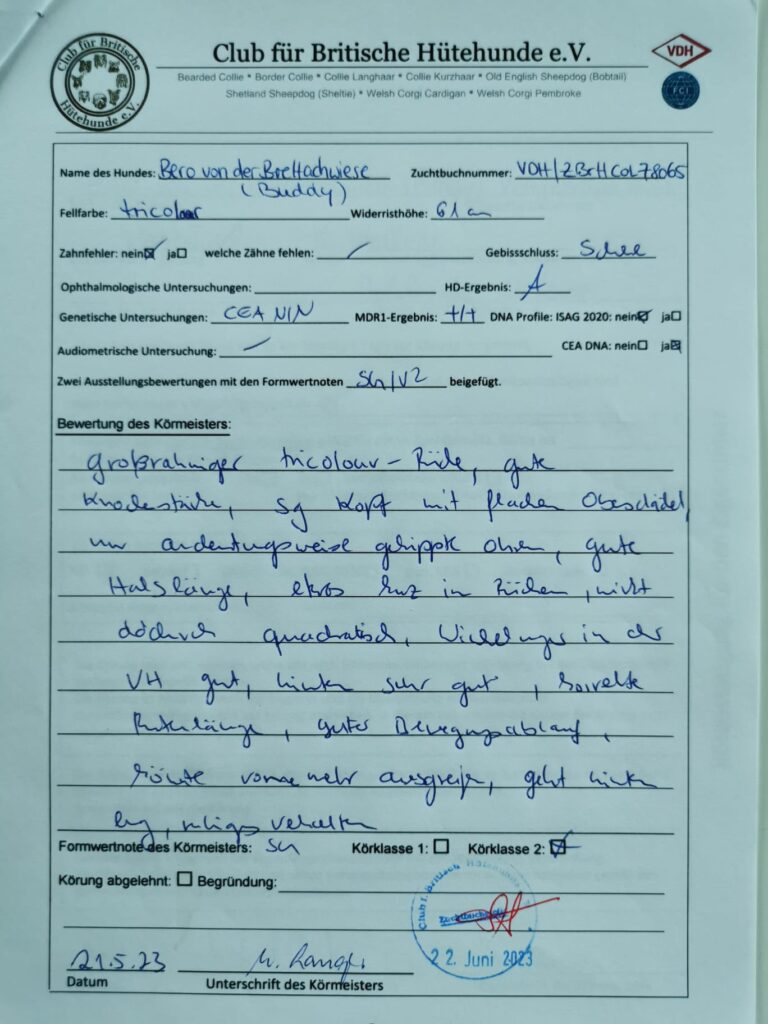 Club für Britische Hütehunde e.V.
Club für Britische Hütehunde e.V.
VDH
FCI
Bearded Collie * Border Collie * Collie Langhaar * Collie Kurzhaar * Old English Sheepdog (Bobtail)
Shetland Sheepdog (Sheltie) * Welsh Corgi Cardigan * Welsh Corgi Pembroke
Name des Hundes: Bero von der Brettachwiese Zuchtbuchnummer: VDH/ZBrH COL 78065
(Buddy)
Fellfarbe: tricolour Widerristhöhe: 61 cm
Zahnfehler: nein☒ ja☐ welche Zähne fehlen: / Gebissschluss: Schere
Ophthalmologische Untersuchungen: HD-Ergebnis: A
Genetische Untersuchungen: CEA N/N MDR1-Ergebnis: +/+ DNA Profile: ISAG 2020: nein☒ ja☐
Audiometrische Untersuchung: / CEA DNA: nein☐ ja☒
Zwei Ausstellungsbewertungen mit den Formwertnoten SG/V2 beigefügt.
Bewertung des Körmeisters:
großrahmiger tricolour-Rüde, gute
Knochenstärke, sg Kopf mit flachem Oberschädel,
nur andeutungsweise gekippte Ohren, gute
Halslänge, etwas kurz im Rücken, wirkt
dadurch quadratisch, Winkelungen in der
VH gut, hinten sehr gut, korrekte
Rutenlänge, guter Bewegungsablauf,
könnte vorne mehr ausgreifen, geht hinten
eng, ruhiges Verhalten
Formwertnote des Körmeisters: SG Körklasse 1: ☐ Körklasse 2: ☒
Körung abgelehnt: ☐ Begründung:
Club f. Britische Hütehunde
Zuchtbuchstelle
22. Juni 2023
21.5.23
Datum Unterschrift des Körmeisters